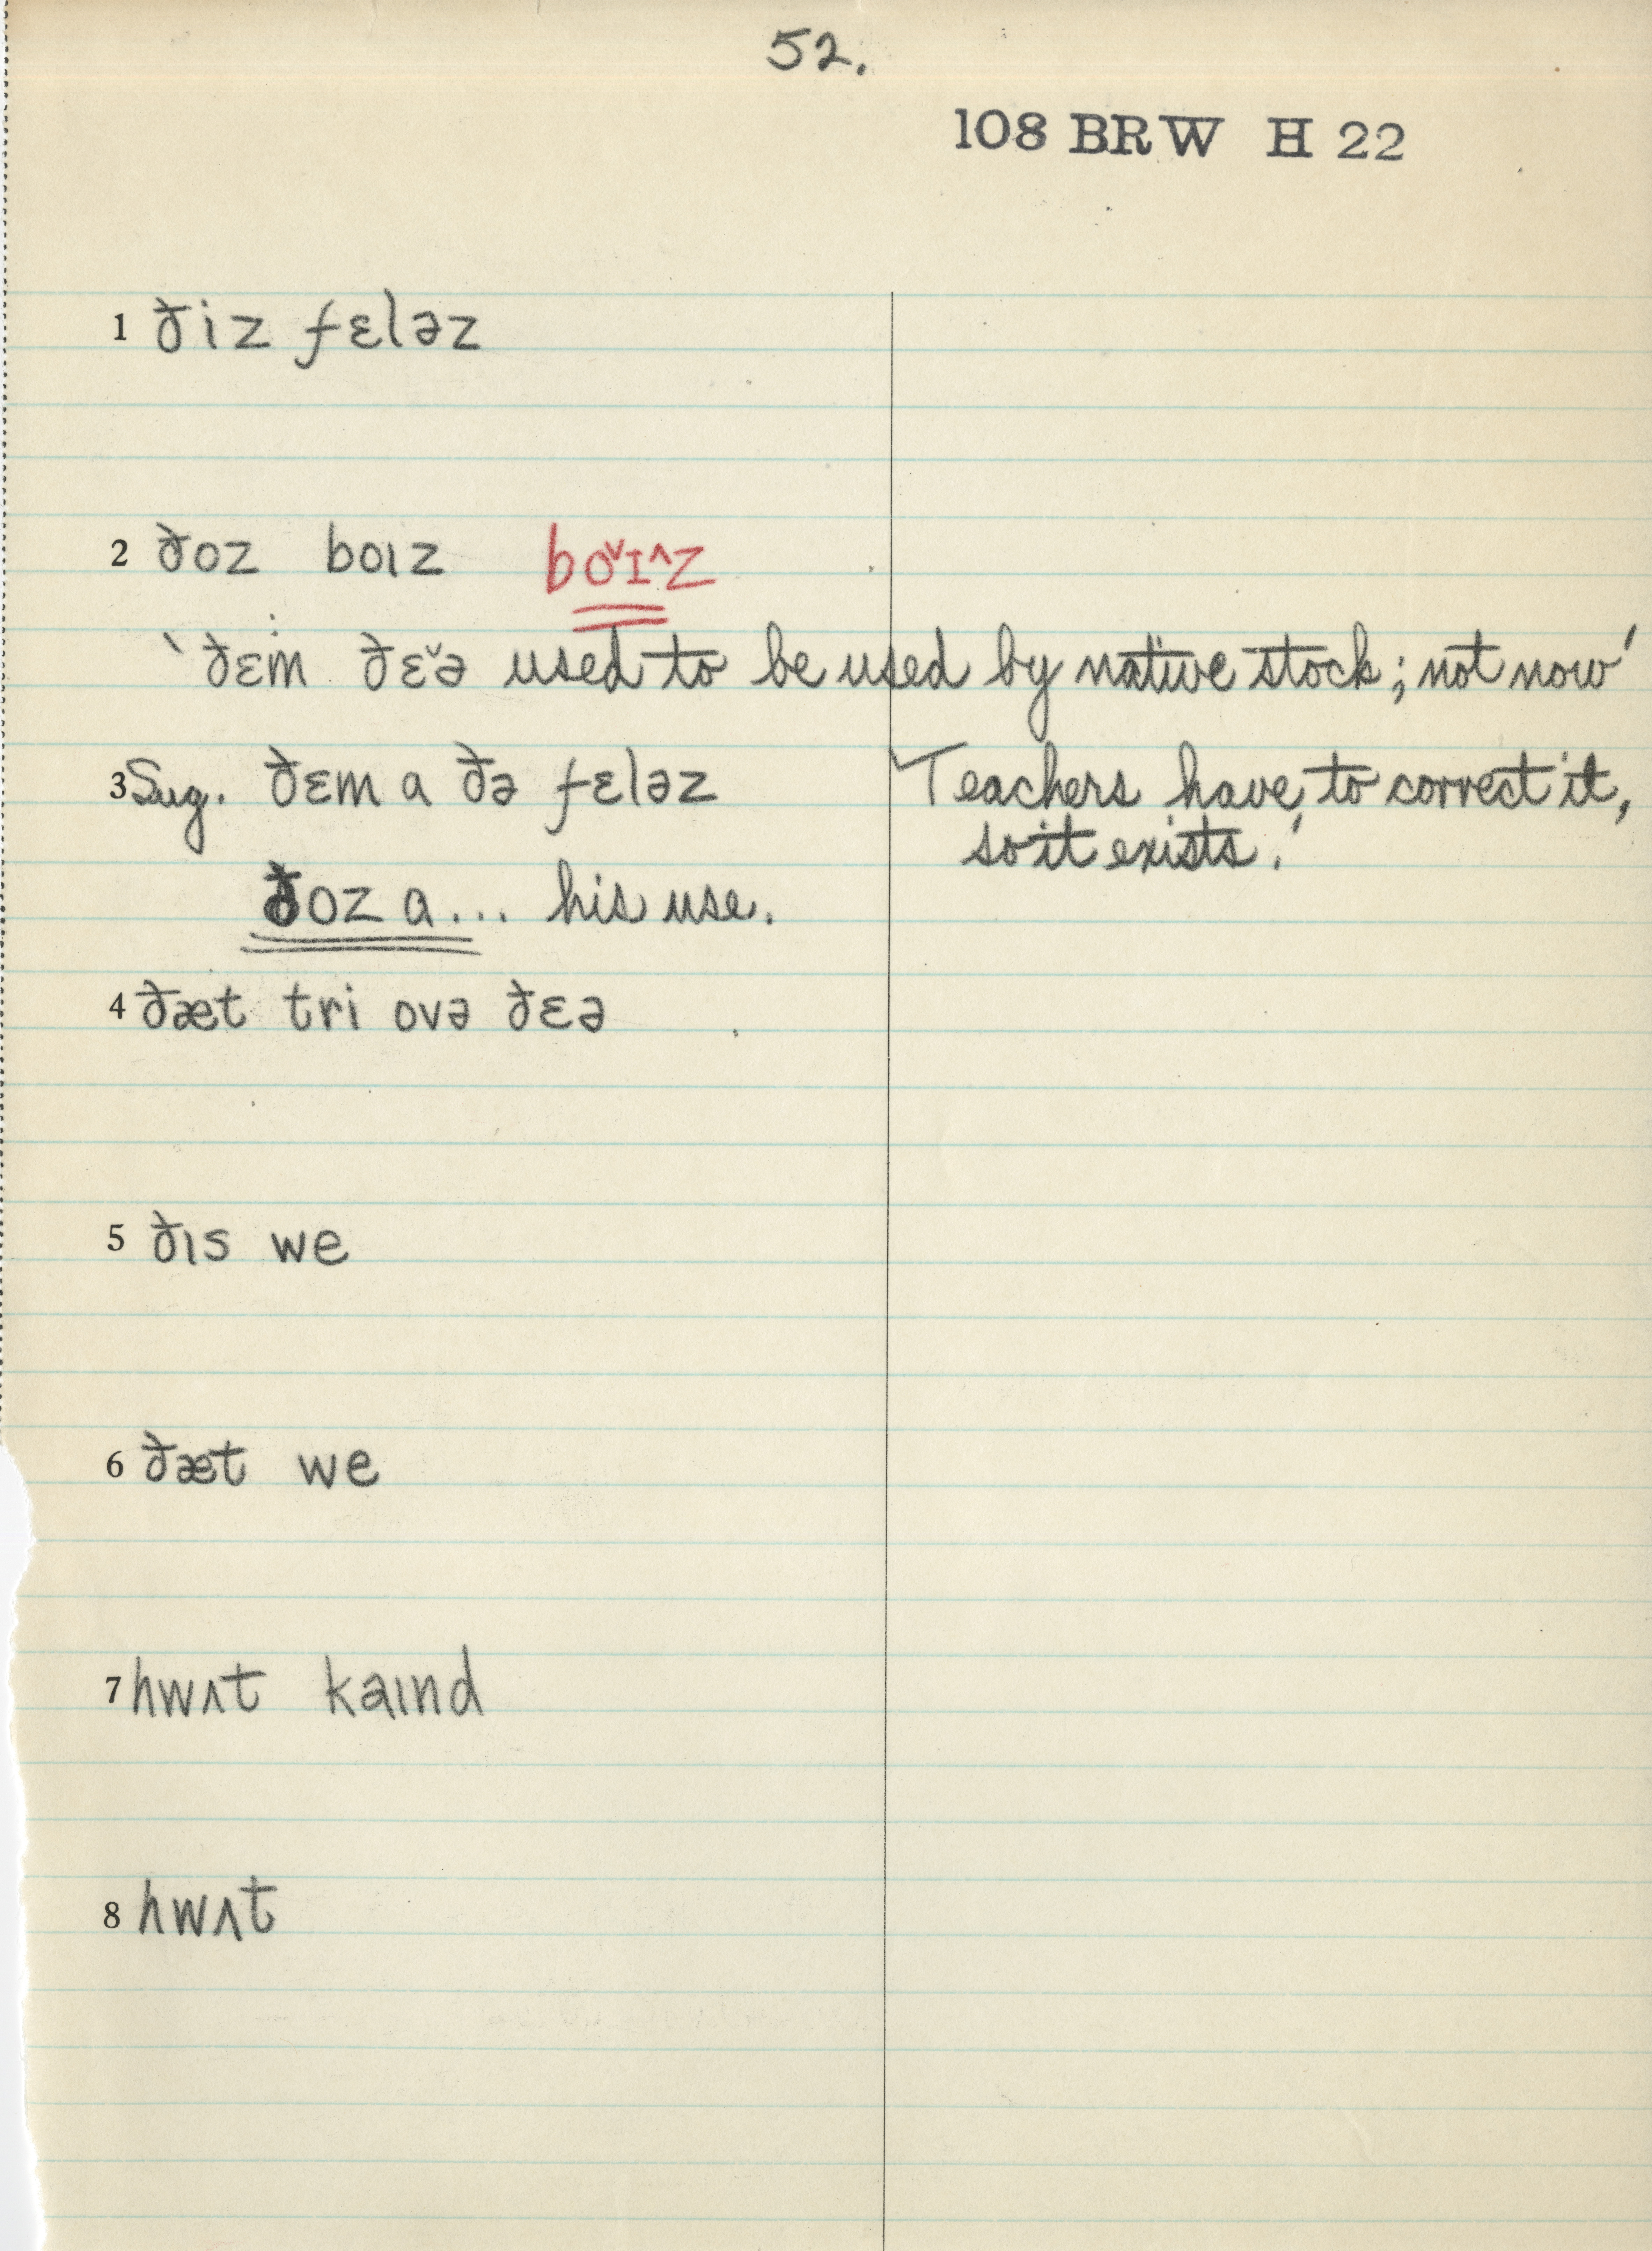 52.
108 BRW H 22
1 ðiz fɛləz
2 ðoz boɪz bo̬ɪ^z
‵ðɛm ðɛ̌ə used to be used by native stock; not now′
3 Sug. ðɛm a ðə fɛləz
'Teachers have to correct it,
so it exists.'
ðoz a... his use.
4 ðæt tri ovə ðɛə
5 ðɪs we
6 ðæt we
7 hwʌt kaɪnd
8 hwʌt